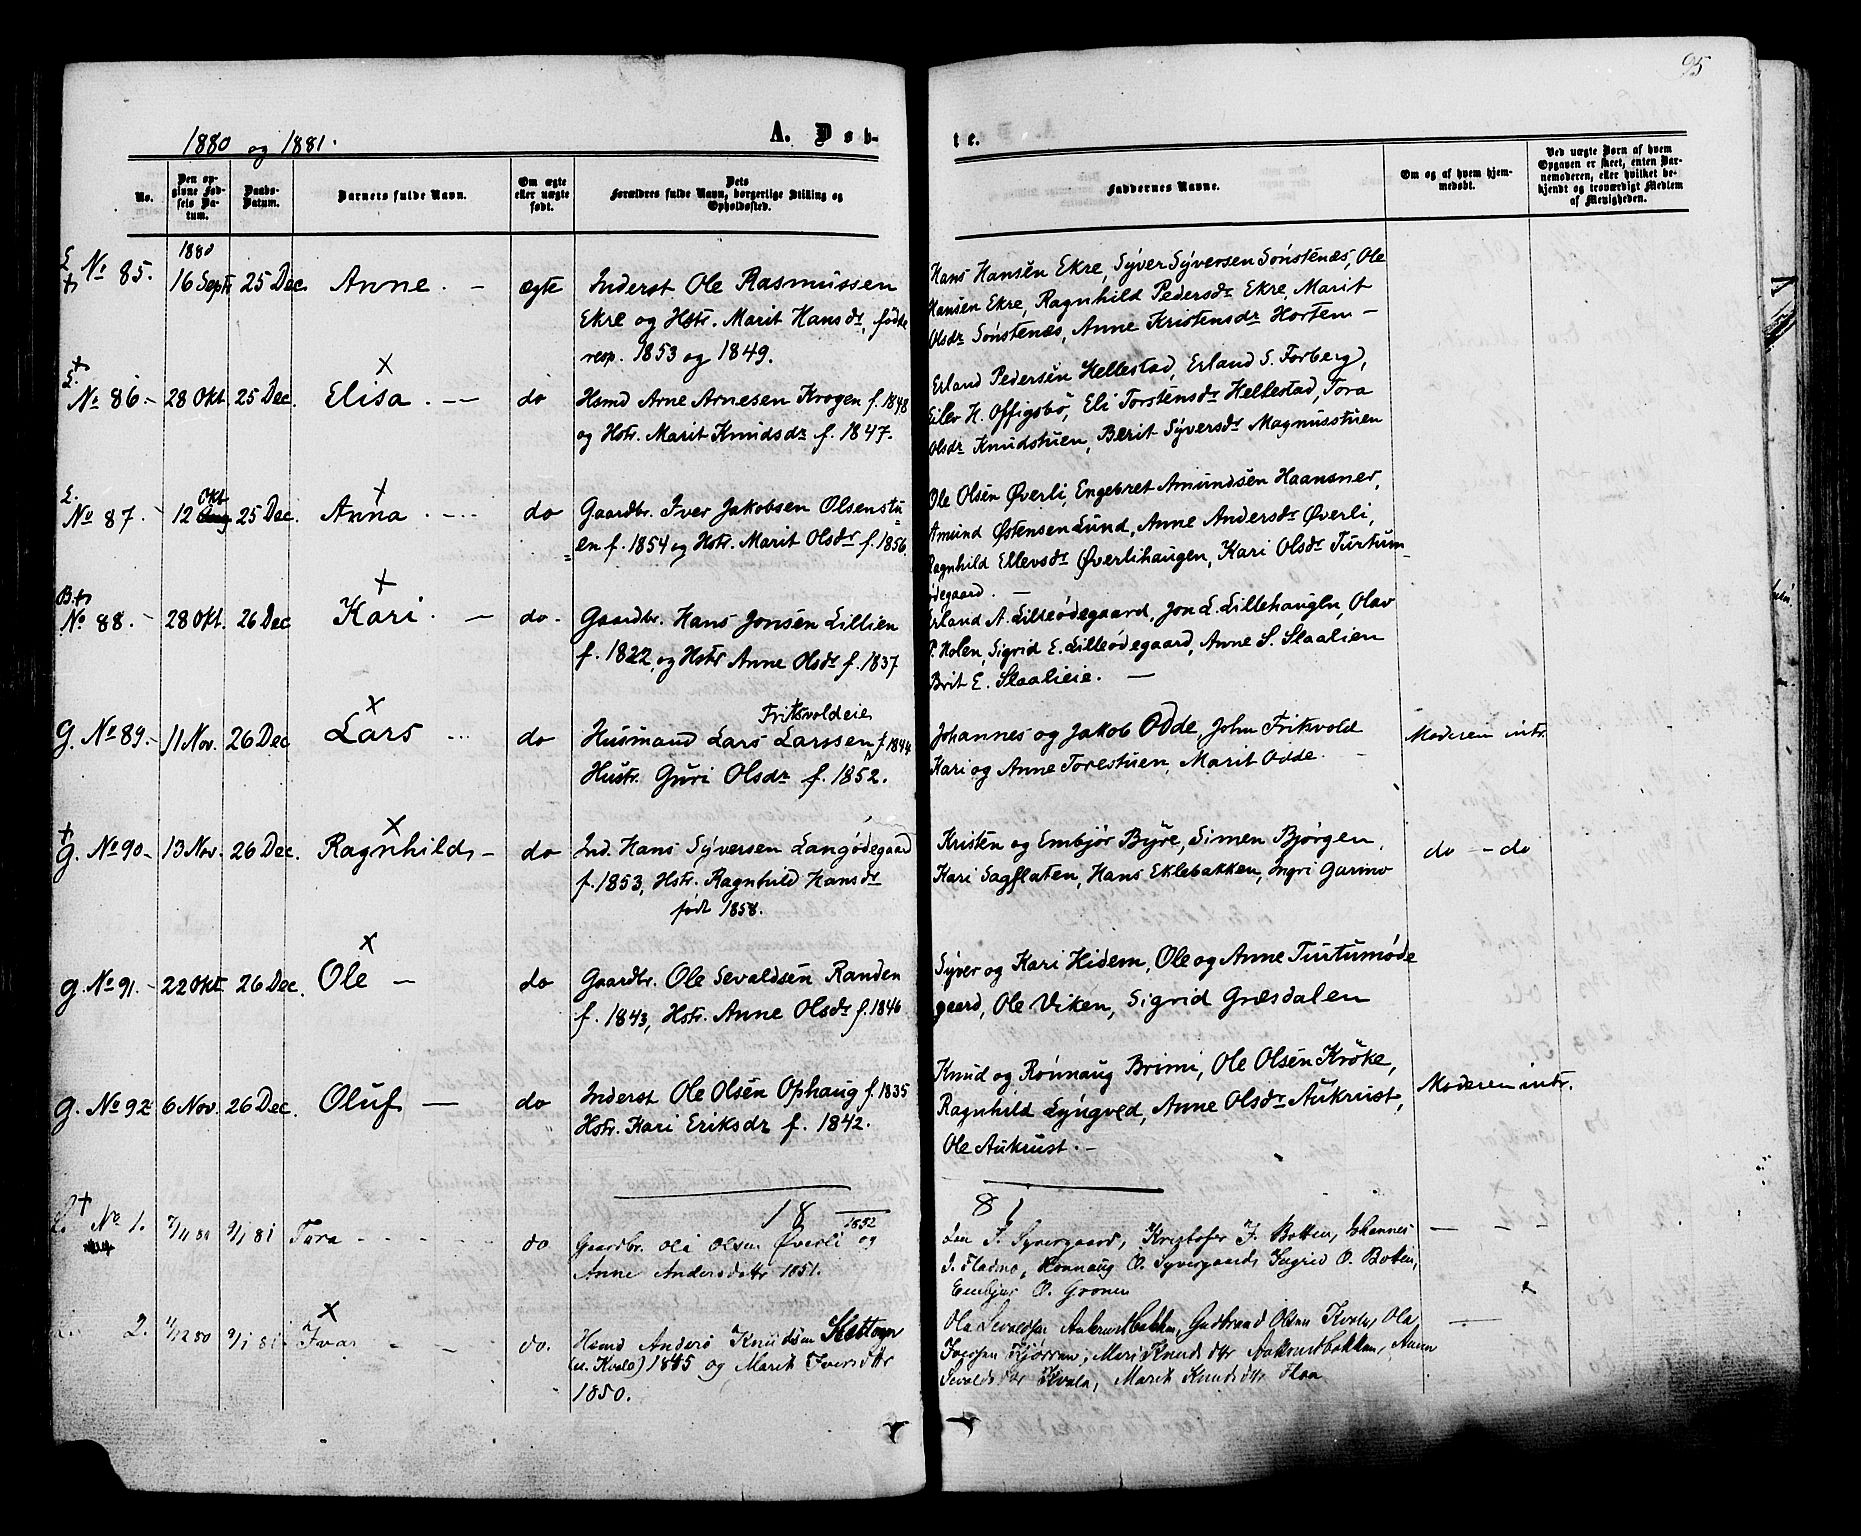 95
1880 og 1881.
A. Døb-
te.
No.
Den op-
givne Fød-
sels Da-
tum.
Daabs-
Datum.
Barnets fulde Navn.
Om ægte
eller uægte
født.
Dets
Forældres fulde Navn, borgerlige Stilling og
Opholdssted.
Faddernes Navne.
Om og af hvem hjem-
medøbt.
Ved uægte Børn af hvem
Opgaven er skeet, enten Bar-
nemoderen, eller hvilket be-
kjendt og troværdigt Medlem
af Menigheden.
L. + No 85. 1880 16 Septr 25 Dec. Anne. - ægte
Inderst Ole Rasmussen
Ekre og Hstr. Marit Hansdr, fødte
resp. 1853 og 1849.
Hans Hansen Ekre, Syver Syversen Sønstenæs, Ole
Hansen Ekre, Ragnhild Pedersdr Ekre, Marit
Olsdr Sønstenæs, Anne Kristensdr Horten -
+ L. No 86. - 28 Okt. 25 Dec. Elisa. - do
Hsmd Arne Arnesen Krogen f. 1848
og Hstr. Marit Knudsdr f. 1847.
Erland Pedersen Hellestad, Erland S. Forberg,
Eiler H. Offigsbø, Eli Torstensdr Hellestad, Tora
Olsdr Knudstuen, Berit Syversdr Magnusstuen
L. No 87. - 12 Okt 25 Dec. Anna. - do
Gaardbr. Iver Jakobsen Olsenstu-
en f. 1854 og Hstr. Marit Olsdr f. 1856.
Ole Olsen Øverli, Engebret Amundsen Haansner,
Amund Østensen Lund, Anne Andersdr Øverli,
Ragnhild Ellevsdr Øverlihaugen, Kari Olsdr Turtum-
ødegaard. -
B. + No 88. - 28 Okt. 26 Dec Kari. - do.
Gaardbr. Hans Jonsen Lillien
f. 1822, og Hstr Anne Olsdr f. 1837
Erland A. Lilleødegaard, Jon L. Lillehaugen, Olav
P. Holen, Sigrid E. Lilleødegaard, Anne S. Slaalien
Brit E. Slaalieie. -
G. No 89. - 11 Nov. 26 Dec Lars do
Fritsvoldeie
Husmand Lars Larssen f. 1844
Hustr. Guri Olsdr f. 1852.
Johannes og Jakob Odde, John Fritsvold
Kari og Anne Torestuen, Marit Odde. -
Moderen intr.
+ G. No 90 - 13 Nov. 26 Dec. Ragnhild, - do
Ind. Hans Syversen Langødegaard
f. 1853, Hstr. Ragnhild Hansdr
født 1858.
Kristen og Embjør Byre, Simen Bjørgen,
Kari Sagflaten, Hans Eklebakken, Ingri Garmo
do - do
G. No 91. - 22 Okt 26 Dec. Ole - do
Gaardbr. Ole Sevaldsen Randen
f. 1843, Hstr. Anne Olsdr f. 1846
Syver og Kari Hidem, Ole og Anne Turtumøde
gaard, Ole Viken, Sigrid Græsdalen
G. No 92 6 Nov. 26 Dec. Oluf - do
Inderst Ole Olsen Ophaug f. 1835
Hstr. Kari Eriksdr f. 1842.
Knud og Rønnaug Brimi, Ole Olsen Krøke,
Ragnhild Lyngved, Anne Olsdr Aukrust,
Ole Aukrust. -
Moderen intr.
18 81
No 1. 9/1 81 Tora do
Gaardbr. Ola Olsen Øverli 1852 og
Anne Andersdttr 1851.
J. Syvergaard, Kristofer J. Botten, Johannes
J. Fladmo, Rønnaug O. Syvergaard, Sigrid O. Botten,
Embjør O. Gronen
2. 9/1 81 Ivar do.
Hsmd Anders Knudsen Skottogn
(u. Kvale) 1845 og Marit Iversdttr
1850.
Ola Sevaldsen Aukrustbakken, Gudbrand Olsen Kvale, Ola
Iversen, Mari Knudsdttr Aukrustbakken,
Sevaldsdttr Kvale, Marit Knudsdttr Flaa